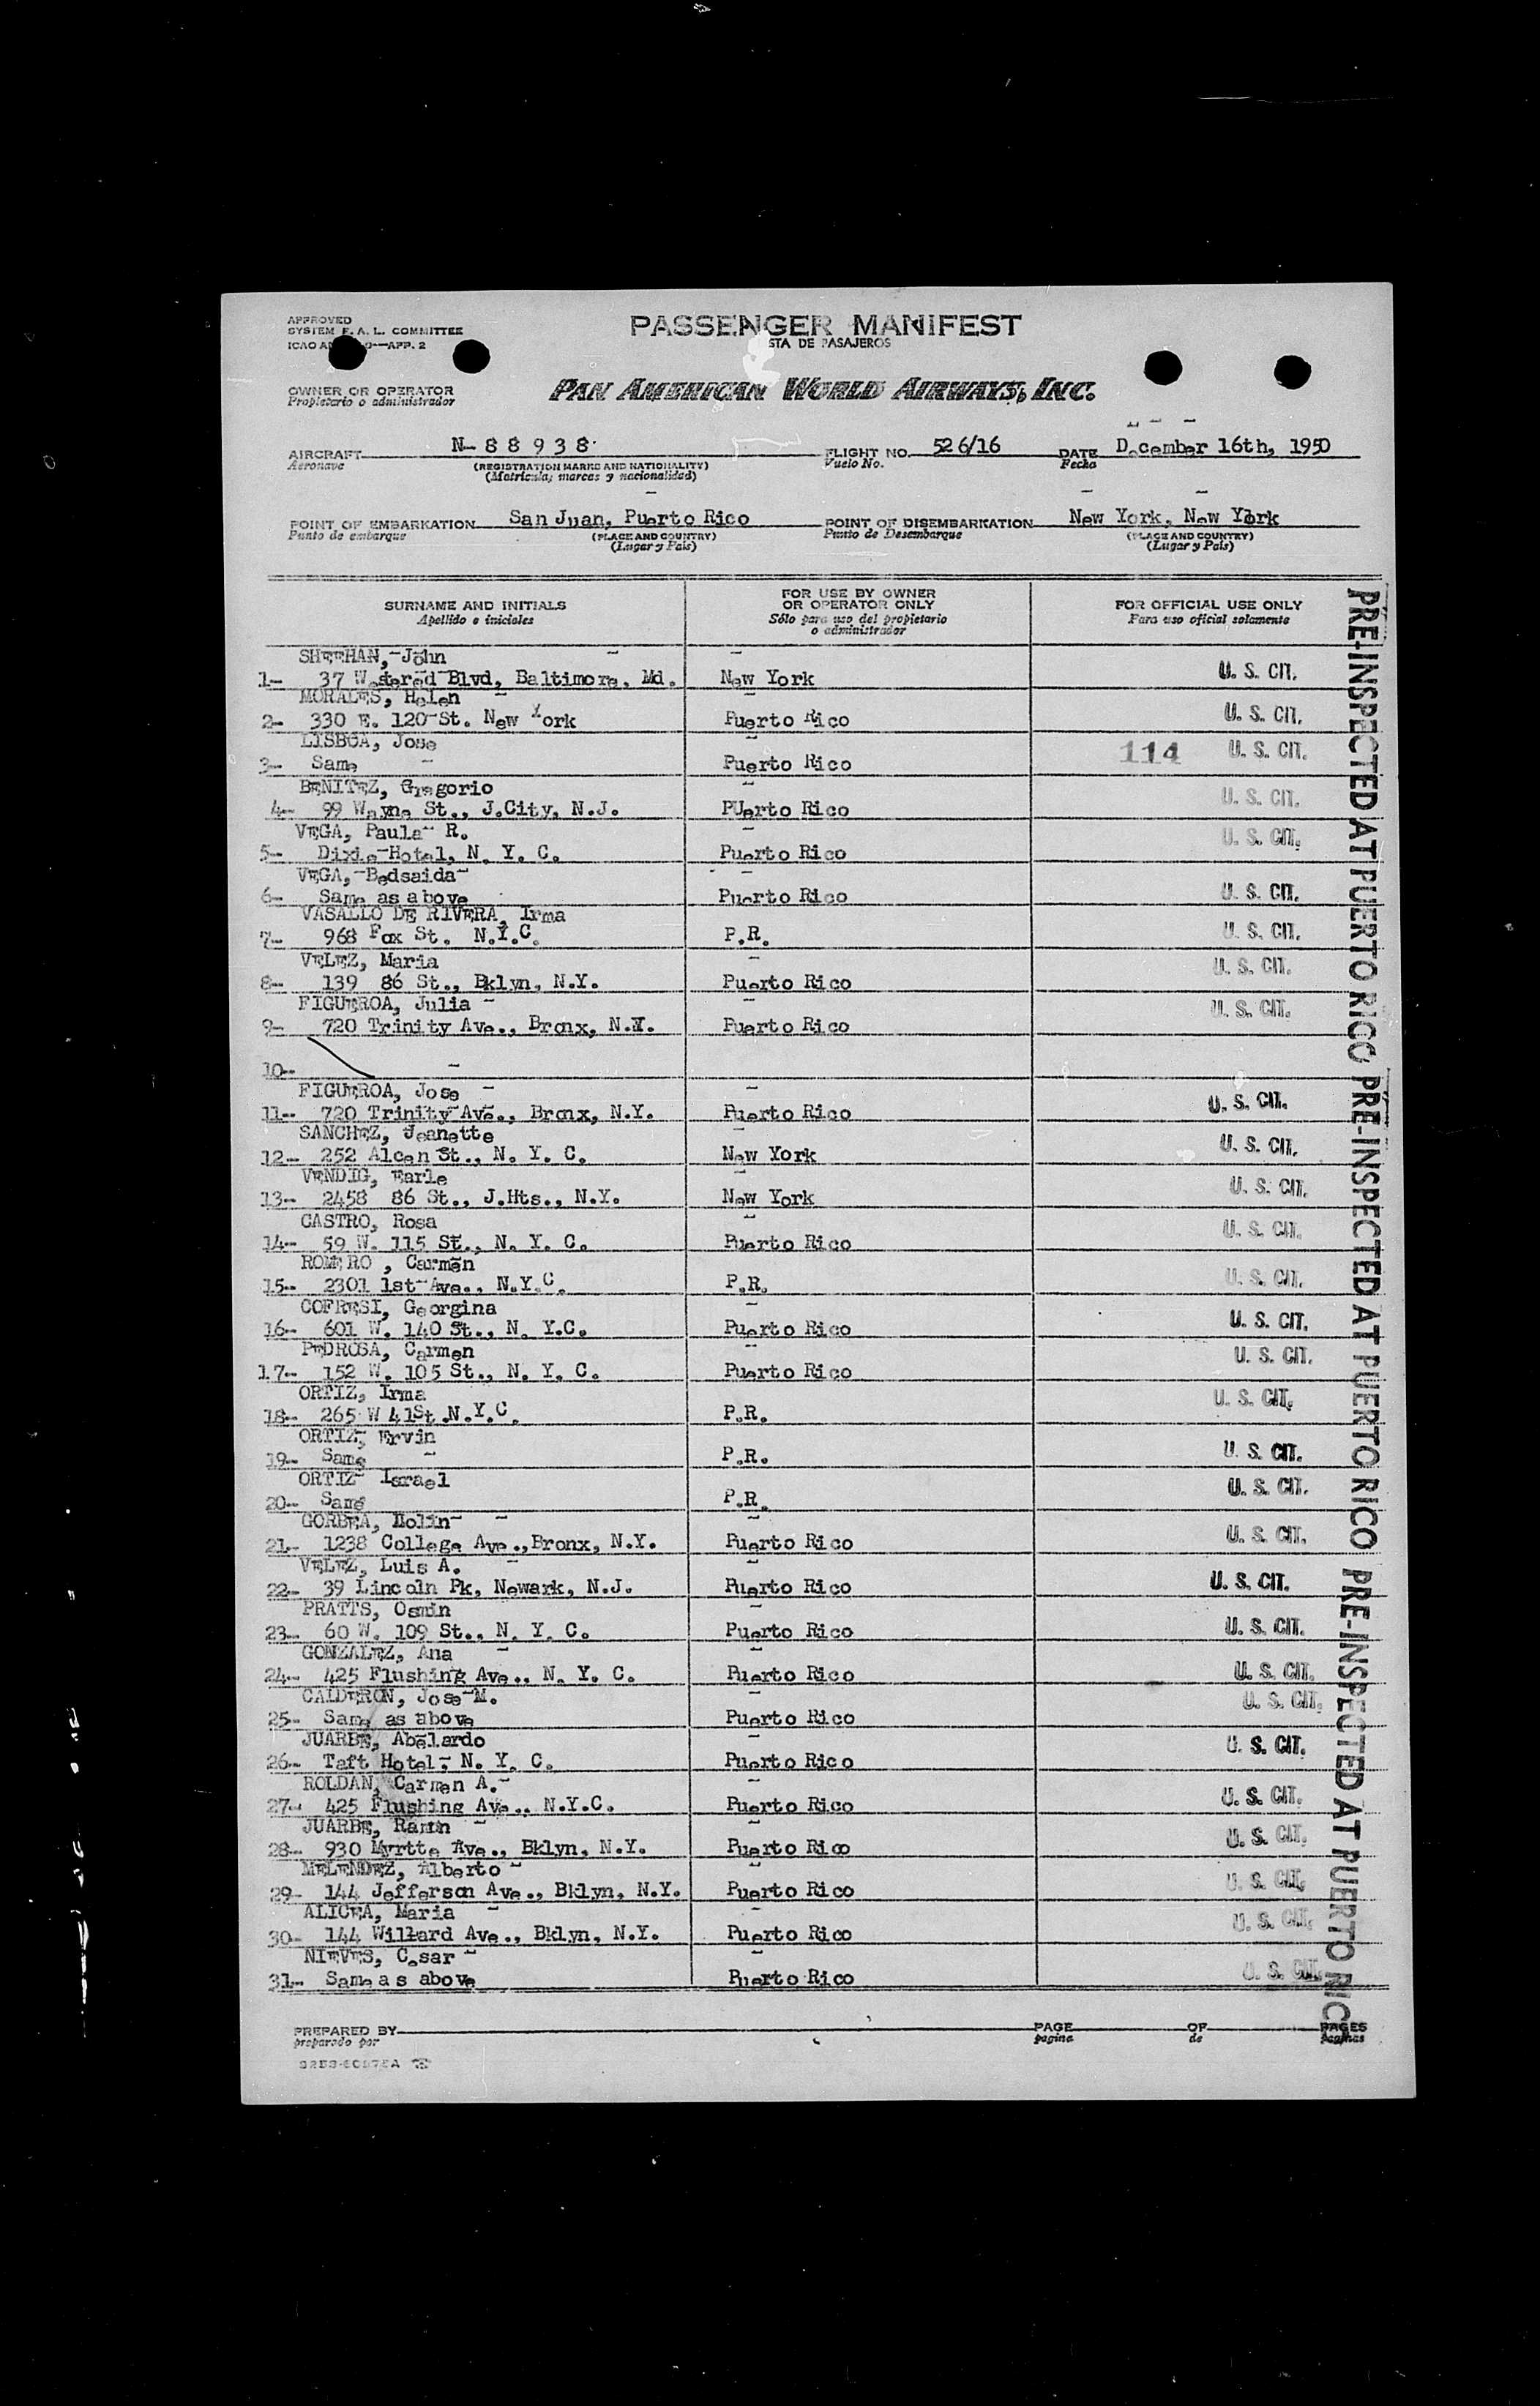 APPROVED
SYSTEM F. A. L. COMMITTEE
ICAO —APP. 2
PASSENGER MANIFEST
STA DE PASAJEROS
OWNER OR OPERATOR
Propietario o administrador
PAN AMERICAN WORLD AIRWAYS, INC.
AIRCRAFT N-88938 FLIGHT NO. 526/16 DATE December 16th, 1950
Aeronave (REGISTRATION MARKS AND NATIONALITY) Vuelo No. Fecha
(Matricula; marcas y nacionalidad)
POINT OF EMBARKATION San Juan, Puerto Rico POINT OF DISEMBARKATION New York, New York
Punto de embarque (PLACE AND COUNTRY) Punto de Desembarque (PLACE AND COUNTRY)
(Lugar y Pais) (Lugar y Pais)
SURNAME AND INITIALS FOR USE BY OWNER OR OPERATOR ONLY FOR OFFICIAL USE ONLY
Apellido e iniciales Sólo para uso del propietario o administrador Para uso oficial solamente
SHEEHAN, John
1- 37 Blvd, Baltimore, Md. New York U. S. CIT.
MORALES, Helen
2- 330 E. 120 St. New York Puerto Rico U. S. CIT.
LISBOA, Jose
3- Same Puerto Rico 114 U. S. CIT.
BENITEZ, Gregorio
4- 99 Wayne St., J.City, N.J. PUerto Rico U. S. CIT.
VEGA, Paula R.
5- Dixie Hotel, N. Y. C. Puerto Rico U. S. CIT.
VEGA, Bedsaida
6- Same as above Puerto Rico U. S. CIT.
VASALLO DE RIVERA, Irma
7- 968 Fox St. N.Y.C. P.R. U. S. CIT.
VELEZ, Maria
8- 139 86 St., Bklyn, N.Y. Puerto Rico U. S. CIT.
FIGUEROA, Julia
9- 720 Trinity Ave., Bronx, N.Y. Puerto Rico U. S. CIT.
10-
FIGUEROA, Jose
11- 720 Trinity Ave., Bronx, N.Y. Puerto Rico U. S. CIT.
SANCHEZ, Jeanette
12- 252 Alcen St., N. Y. C. New York U. S. CIT.
VENDIG, Earle
13- 2458 86 St., J.Hts., N.Y. New York U. S. CIT.
CASTRO, Rosa
14- 59 W. 115 St., N. Y. C. Puerto Rico U. S. CIT.
ROMERO , Carmen
15- 2301 1st Ave., N.Y.C. P.R. U. S. CIT.
COFRESI, Georgina
16- 601 W. 140 St., N. Y.C. Puerto Rico U. S. CIT.
PEDROSA, Carmen
17- 152 W. 105 St., N. Y. C. Puerto Rico U. S. CIT.
ORTIZ, Irma
18- 265 W 41St N.Y.C. P.R. U. S. CIT.
ORTIZ, Ervin
19- Same P.R. U. S. CIT.
ORTIZ Israel
20- Same P.R. U. S. CIT.
GORBEA,
21- 1238 College Ave.,Bronx, N.Y. Puerto Rico U. S. CIT.
VELEZ, Luis A.
22- 39 Lincoln Pk, Newark, N.J. Puerto Rico U. S. CIT.
PRATTS, Osmin
23- 60 W. 109 St., N. Y. C. Puerto Rico U. S. CIT.
GONZALEZ, Ana
24- 425 Flushing Ave., N. Y. C. Puerto Rico U. S. CIT.
CALDERON, Jose M.
25- Same as above Puerto Rico U. S. CIT.
JUARBE, Abelardo
26- Taft Hotel, N. Y. C. Puerto Rico U. S. CIT.
ROLDAN, Carmen A.
27- 425 Flushing Ave., N.Y.C. Puerto Rico U. S. CIT.
JUARBE, Ramon
28- 930 Myrtte Ave., Bklyn, N.Y. Puerto Rico U. S. CIT.
MELENDEZ, Alberto
29- 144 Jefferson Ave., Bklyn, N.Y. Puerto Rico U. S. CIT.
ALICEA, Maria
30- 144 Willard Ave., Bklyn, N.Y. Puerto Rico U. S. CIT.
NIEVES, Cesar
31- Same as above Puerto Rico U. S. CIT.
PRE-INSPECTED AT PUERTO RICO PRE-INSPECTED AT PUERTO RICO PRE-INSPECTED AT PUERTO RICO
PREPARED BY PAGE OF PAGES
preparado por pagina de paginas